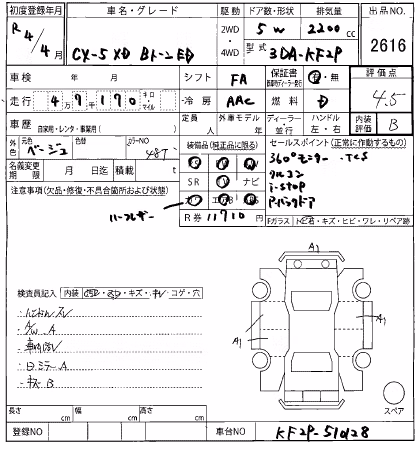 初度登録年月 車名・グレード 駆動 ドア数・形状 排気量 出品NO.
R 4/4月 CX-5 XD 2WD・4WD 5W 2200cc 2616
型式 3DA-KF2P
車検 年 月 シフト FA 保証書 有・無 評価点
走行 4万7千170 キロ・マイル 冷房 AAC 燃料 D 4.5
車歴 自家用・レンタ・事業用( ) 定員 人 外車モデル 年 ディーラー・並行 ハンドル 左・右 内装評価 B
外色 元色 ベージュ 色替 カラーNO 48T
装備品(純正品に限る) セールスポイント(正常に作動するもの)
名義変更期限 月 日迄 積載 t
SR ナビ
360°モニター ・TCS
クルコン
i-stop
Pバックドア
注意事項(欠品・修復・不具合箇所および状態)
ハーフレザー
R券 11710円
Fガラス トビ石・キズ・ヒビ・ワレ・リペア跡
検査員記入 内装
ハンドルスレ
A/W A
ミラー A
キズ B
A1
A1
A1
スペア
長さ cm 幅 cm 高さ cm
登録NO 車台NO KF2P-510128